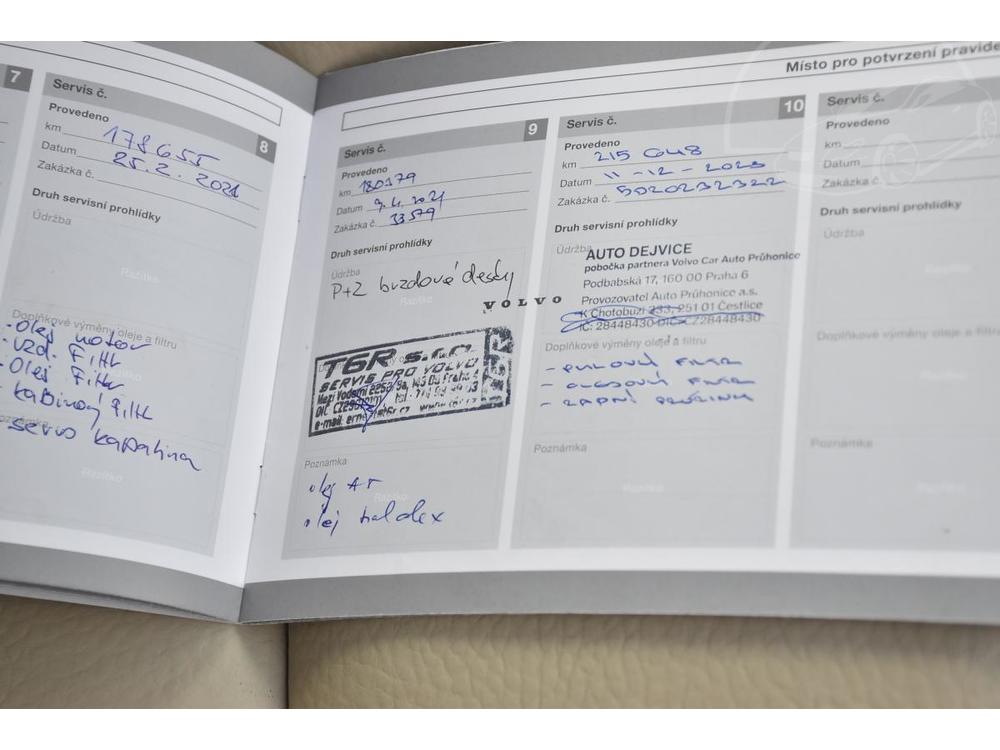 Místo pro potvrzení pravide
7
Servis č.
8
Provedeno
km 178655
Datum 25.2. 2021
Zakázka č.
Druh servisní prohlídky
Údržba
Razítko
Doplňkové výměny oleje a filtru
- olej motor
- vzd. Filtr
- Olej Filtr
- Kabinový Filtr
- servo kapalina
Razítko
Servis č.
9
Provedeno
km 180179
Datum 9.4. 2021
Zakázka č. 33579
Druh servisní prohlídky
Údržba
P+Z brzdové desky
Razítko
T6R s.r.o.
SERVIS PRO VOLVO
Poznámka
olej AT
Razítko
olej haldex
Servis č.
10
Provedeno
km 215 648
Datum 11-12-2023
Zakázka č. 5020232322
Druh servisní prohlídky
Údržba
AUTO DEJVICE
pobočka partnera Volvo Car Auto Průhonice
Podbabská 17, 160 00 Praha 6
VOLVO
Provozovatel Auto Průhonice a.s.
K Chotobuzi 333, 251 01 Čestlice
IČ: 28448430 DIČ: CZ28448430
Doplňkové výměny oleje a filtru
- PYLOVÝ FILTR
- OLEJOVÝ FILTR
Poznámka
Razítko
Servis č.
Provedeno
km
Datum
Zakázka č.
Druh servisní prohlídky
Údržba
Razítko
Doplňkové výměny oleje a filtru
Poznámka
Razítko